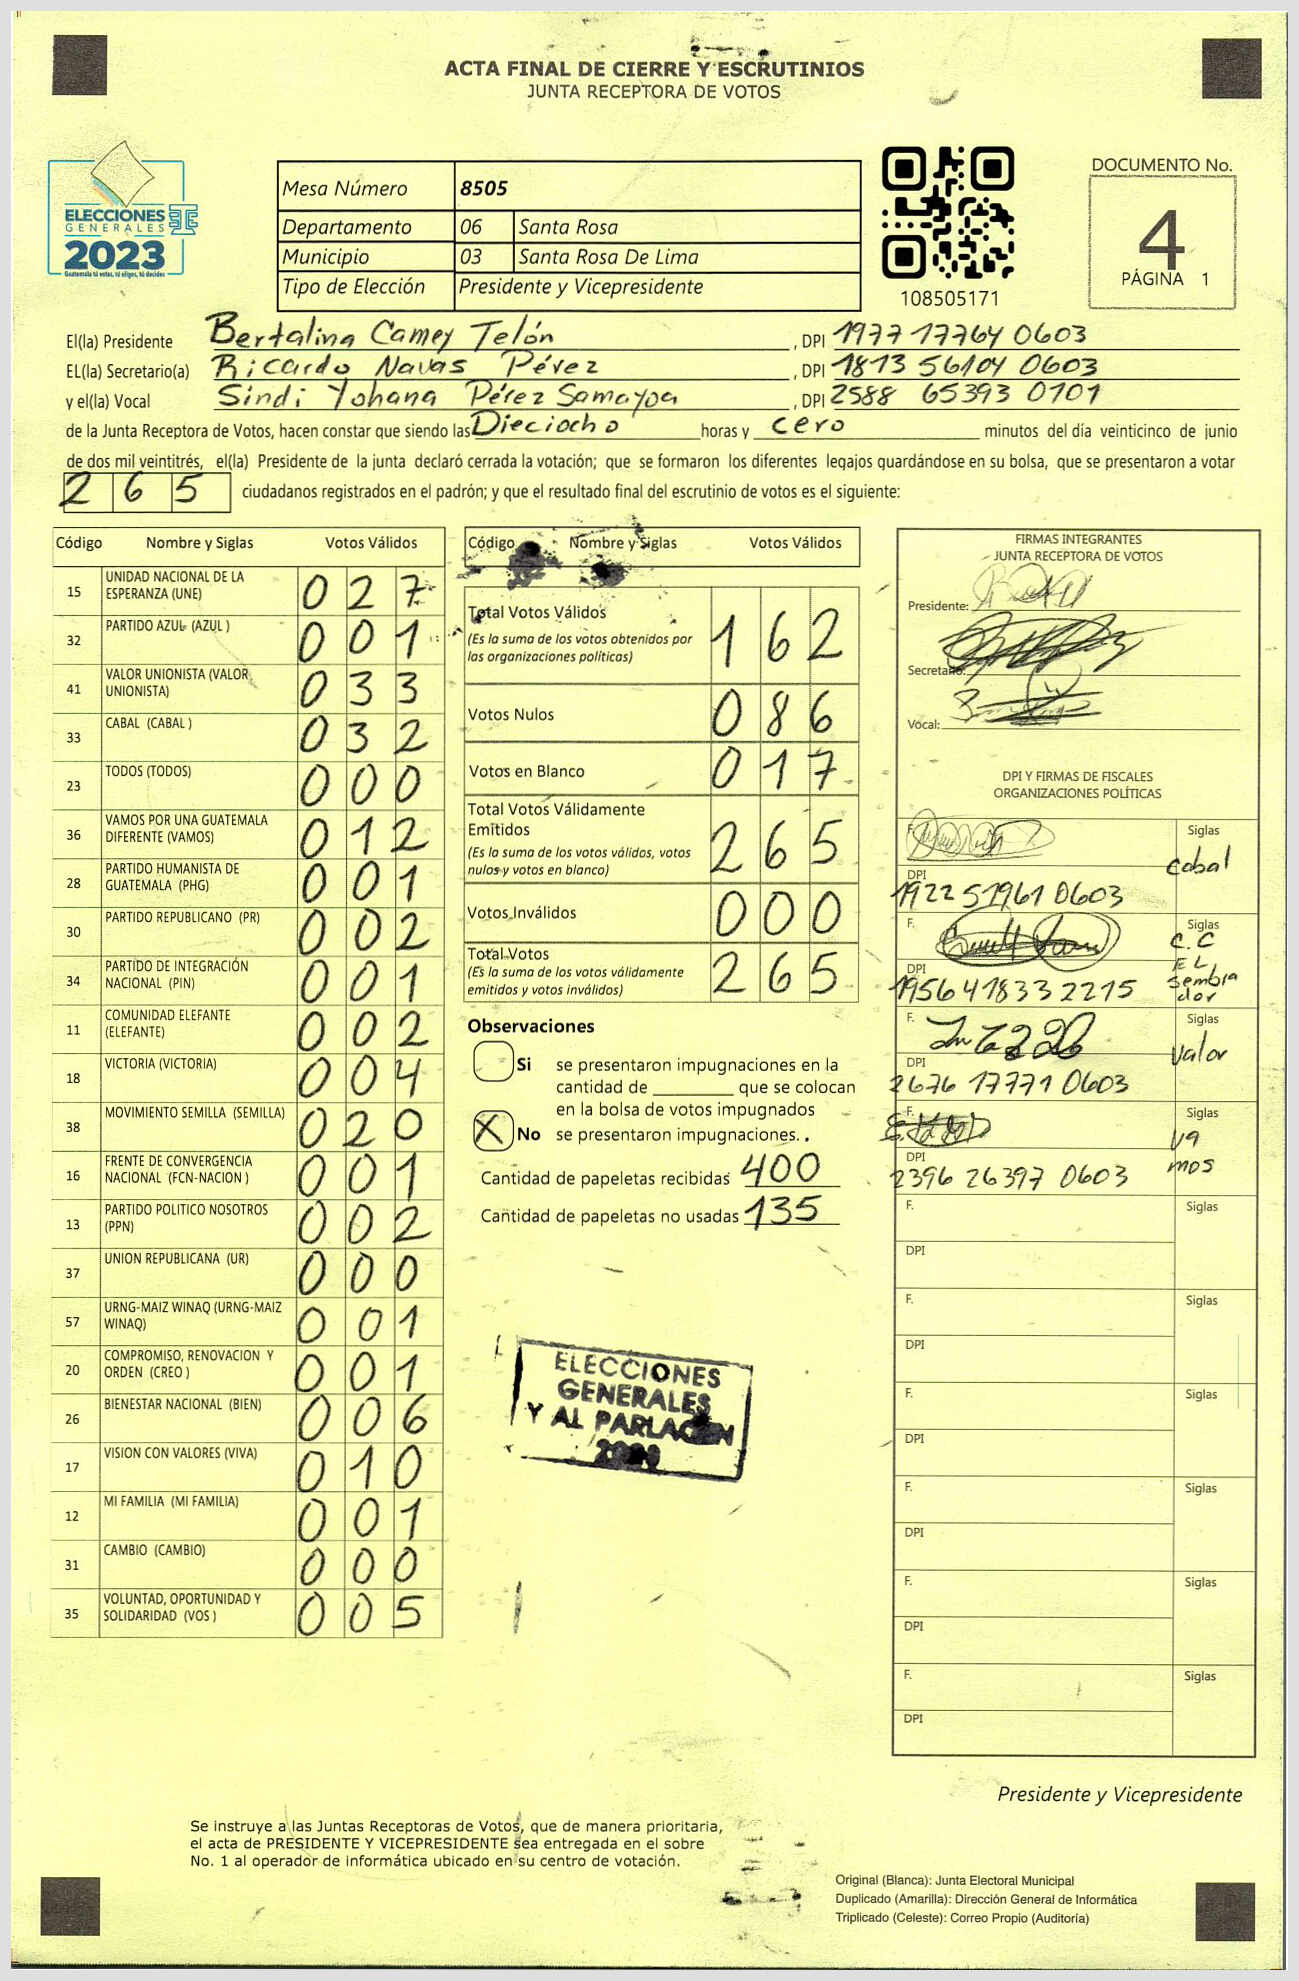 ACTA FINAL DE CIERRE Y ESCRUTINIOS
JUNTA RECEPTORA DE VOTOS
ELECCIONES
GENERALES
2023
Guatemala tú votas, tú eliges, tú decides
Mesa Número 8505
Departamento 06 Santa Rosa
Municipio 03 Santa Rosa De Lima
Tipo de Elección Presidente y Vicepresidente
108505171
DOCUMENTO No.
4
PÁGINA 1
El(la) Presidente Bertalina Camey Telón, DPI 1977 17764 0603
EL(la) Secretario(a) Ricardo Navas Pérez, DPI 1813 56104 0603
y el(la) Vocal Sindi Yohana Pérez Samayoa, DPI 2588 65393 0701
de la Junta Receptora de Votos, hacen constar que siendo las Dieciocho horas y cero minutos del día veinticinco de junio
de dos mil veintitrés, el(la) Presidente de la junta declaró cerrada la votación; que se formaron los diferentes legajos guardándose en su bolsa, que se presentaron a votar
265 ciudadanos registrados en el padrón; y que el resultado final del escrutinio de votos es el siguiente:
Código Nombre y Siglas Votos Válidos
15 UNIDAD NACIONAL DE LA ESPERANZA (UNE) 027
32 PARTIDO AZUL (AZUL ) 001
41 VALOR UNIONISTA (VALOR UNIONISTA) 033
33 CABAL (CABAL ) 032
23 TODOS (TODOS) 000
36 VAMOS POR UNA GUATEMALA DIFERENTE (VAMOS) 012
28 PARTIDO HUMANISTA DE GUATEMALA (PHG) 001
30 PARTIDO REPUBLICANO (PR) 002
34 PARTIDO DE INTEGRACIÓN NACIONAL (PIN) 001
11 COMUNIDAD ELEFANTE (ELEFANTE) 002
18 VICTORIA (VICTORIA) 004
38 MOVIMIENTO SEMILLA (SEMILLA) 020
16 FRENTE DE CONVERGENCIA NACIONAL (FCN-NACION ) 001
13 PARTIDO POLITICO NOSOTROS (PPN) 002
37 UNION REPUBLICANA (UR) 000
57 URNG-MAIZ WINAQ (URNG-MAIZ WINAQ) 001
20 COMPROMISO, RENOVACION Y ORDEN (CREO ) 001
26 BIENESTAR NACIONAL (BIEN) 006
17 VISION CON VALORES (VIVA) 010
12 MI FAMILIA (MI FAMILIA) 001
31 CAMBIO (CAMBIO) 000
35 VOLUNTAD, OPORTUNIDAD Y SOLIDARIDAD (VOS ) 005
Código Nombre y Siglas Votos Válidos
Total Votos Válidos 162
(Es la suma de los votos obtenidos por
las organizaciones políticas)
Votos Nulos 086
Votos en Blanco 017
Total Votos Válidamente
Emitidos 265
(Es la suma de los votos válidos, votos
nulos y votos en blanco)
Votos Inválidos 000
Total Votos 265
(Es la suma de los votos válidamente
emitidos y votos inválidos)
Observaciones
Si se presentaron impugnaciones en la
cantidad de ________ que se colocan
en la bolsa de votos impugnados
X No se presentaron impugnaciones.
Cantidad de papeletas recibidas 400
Cantidad de papeletas no usadas 135
ELECCIONES
GENERALES
Y AL PARLACEN
FIRMAS INTEGRANTES
JUNTA RECEPTORA DE VOTOS
Presidente:
Secretario:
Vocal:
DPI Y FIRMAS DE FISCALES
ORGANIZACIONES POLÍTICAS
F. Siglas cabal
DPI 1922 51961 0603
F. Siglas C.C EL Sembrador
DPI 1956 41833 2215
F. Siglas valor
DPI 2676 17771 0603
F. Siglas vamos
DPI 2396 26397 0603
F. Siglas
DPI
F. Siglas
DPI
F. Siglas
DPI
F. Siglas
DPI
F. Siglas
DPI
F. Siglas
DPI
Presidente y Vicepresidente
Se instruye a las Juntas Receptoras de Votos, que de manera prioritaria,
el acta de PRESIDENTE Y VICEPRESIDENTE sea entregada en el sobre
No. 1 al operador de informática ubicado en su centro de votación.
Original (Blanca): Junta Electoral Municipal
Duplicado (Amarilla): Dirección General de Informática
Triplicado (Celeste): Correo Propio (Auditoría)